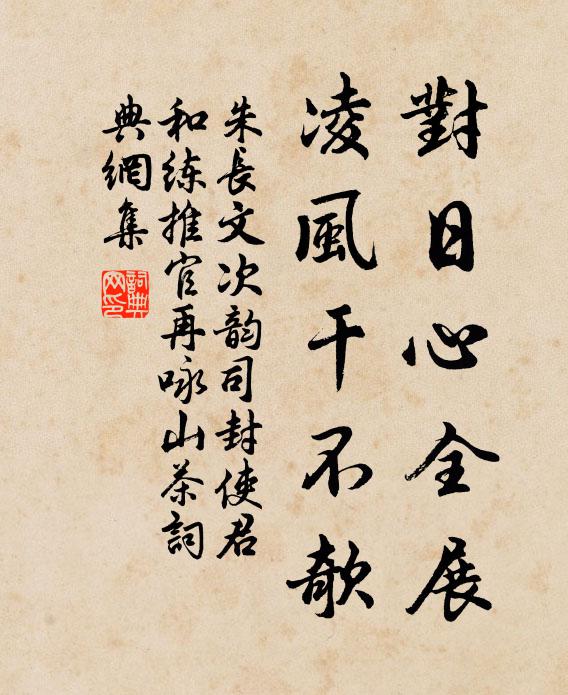 對日心全展
凌風干不欹
朱長文次韵司封使君
和练推官再咏山茶詞
典網集
詞典
网印